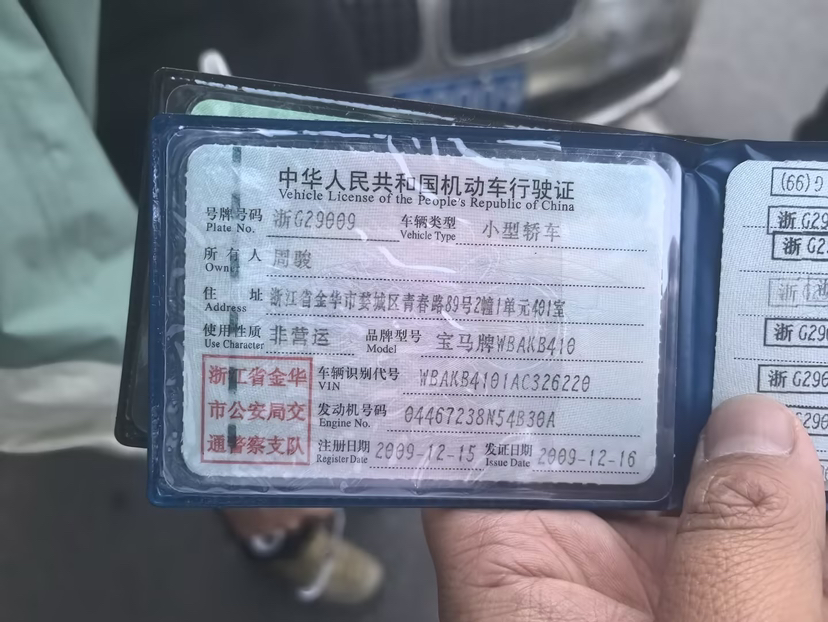 中华人民共和国机动车行驶证
Vehicle License of the People's Republic of China
号牌号码 浙G29009 车辆类型 小型轿车
Plate No. Vehicle Type
所有人 周骏
Owner
住址 浙江省金华市婺城区青春路89号2幢1单元401室
Address
使用性质 非营运 品牌型号 宝马牌WBAKB410
Use Character Model
浙江省金华
市公安局交
通警察支队
车辆识别代号 WBAKB4101AC326220
VIN
发动机号码 04467238N54B30A
Engine No.
注册日期 2009-12-15 发证日期 2009-12-16
Register Date Issue Date
(66)
浙G29
浙G2
浙G
浙G290
浙G290